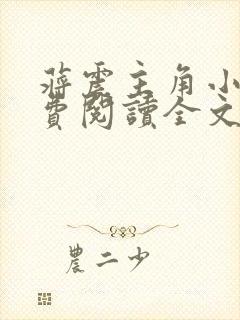 蔣震主角小
費閱讀全文
農二少